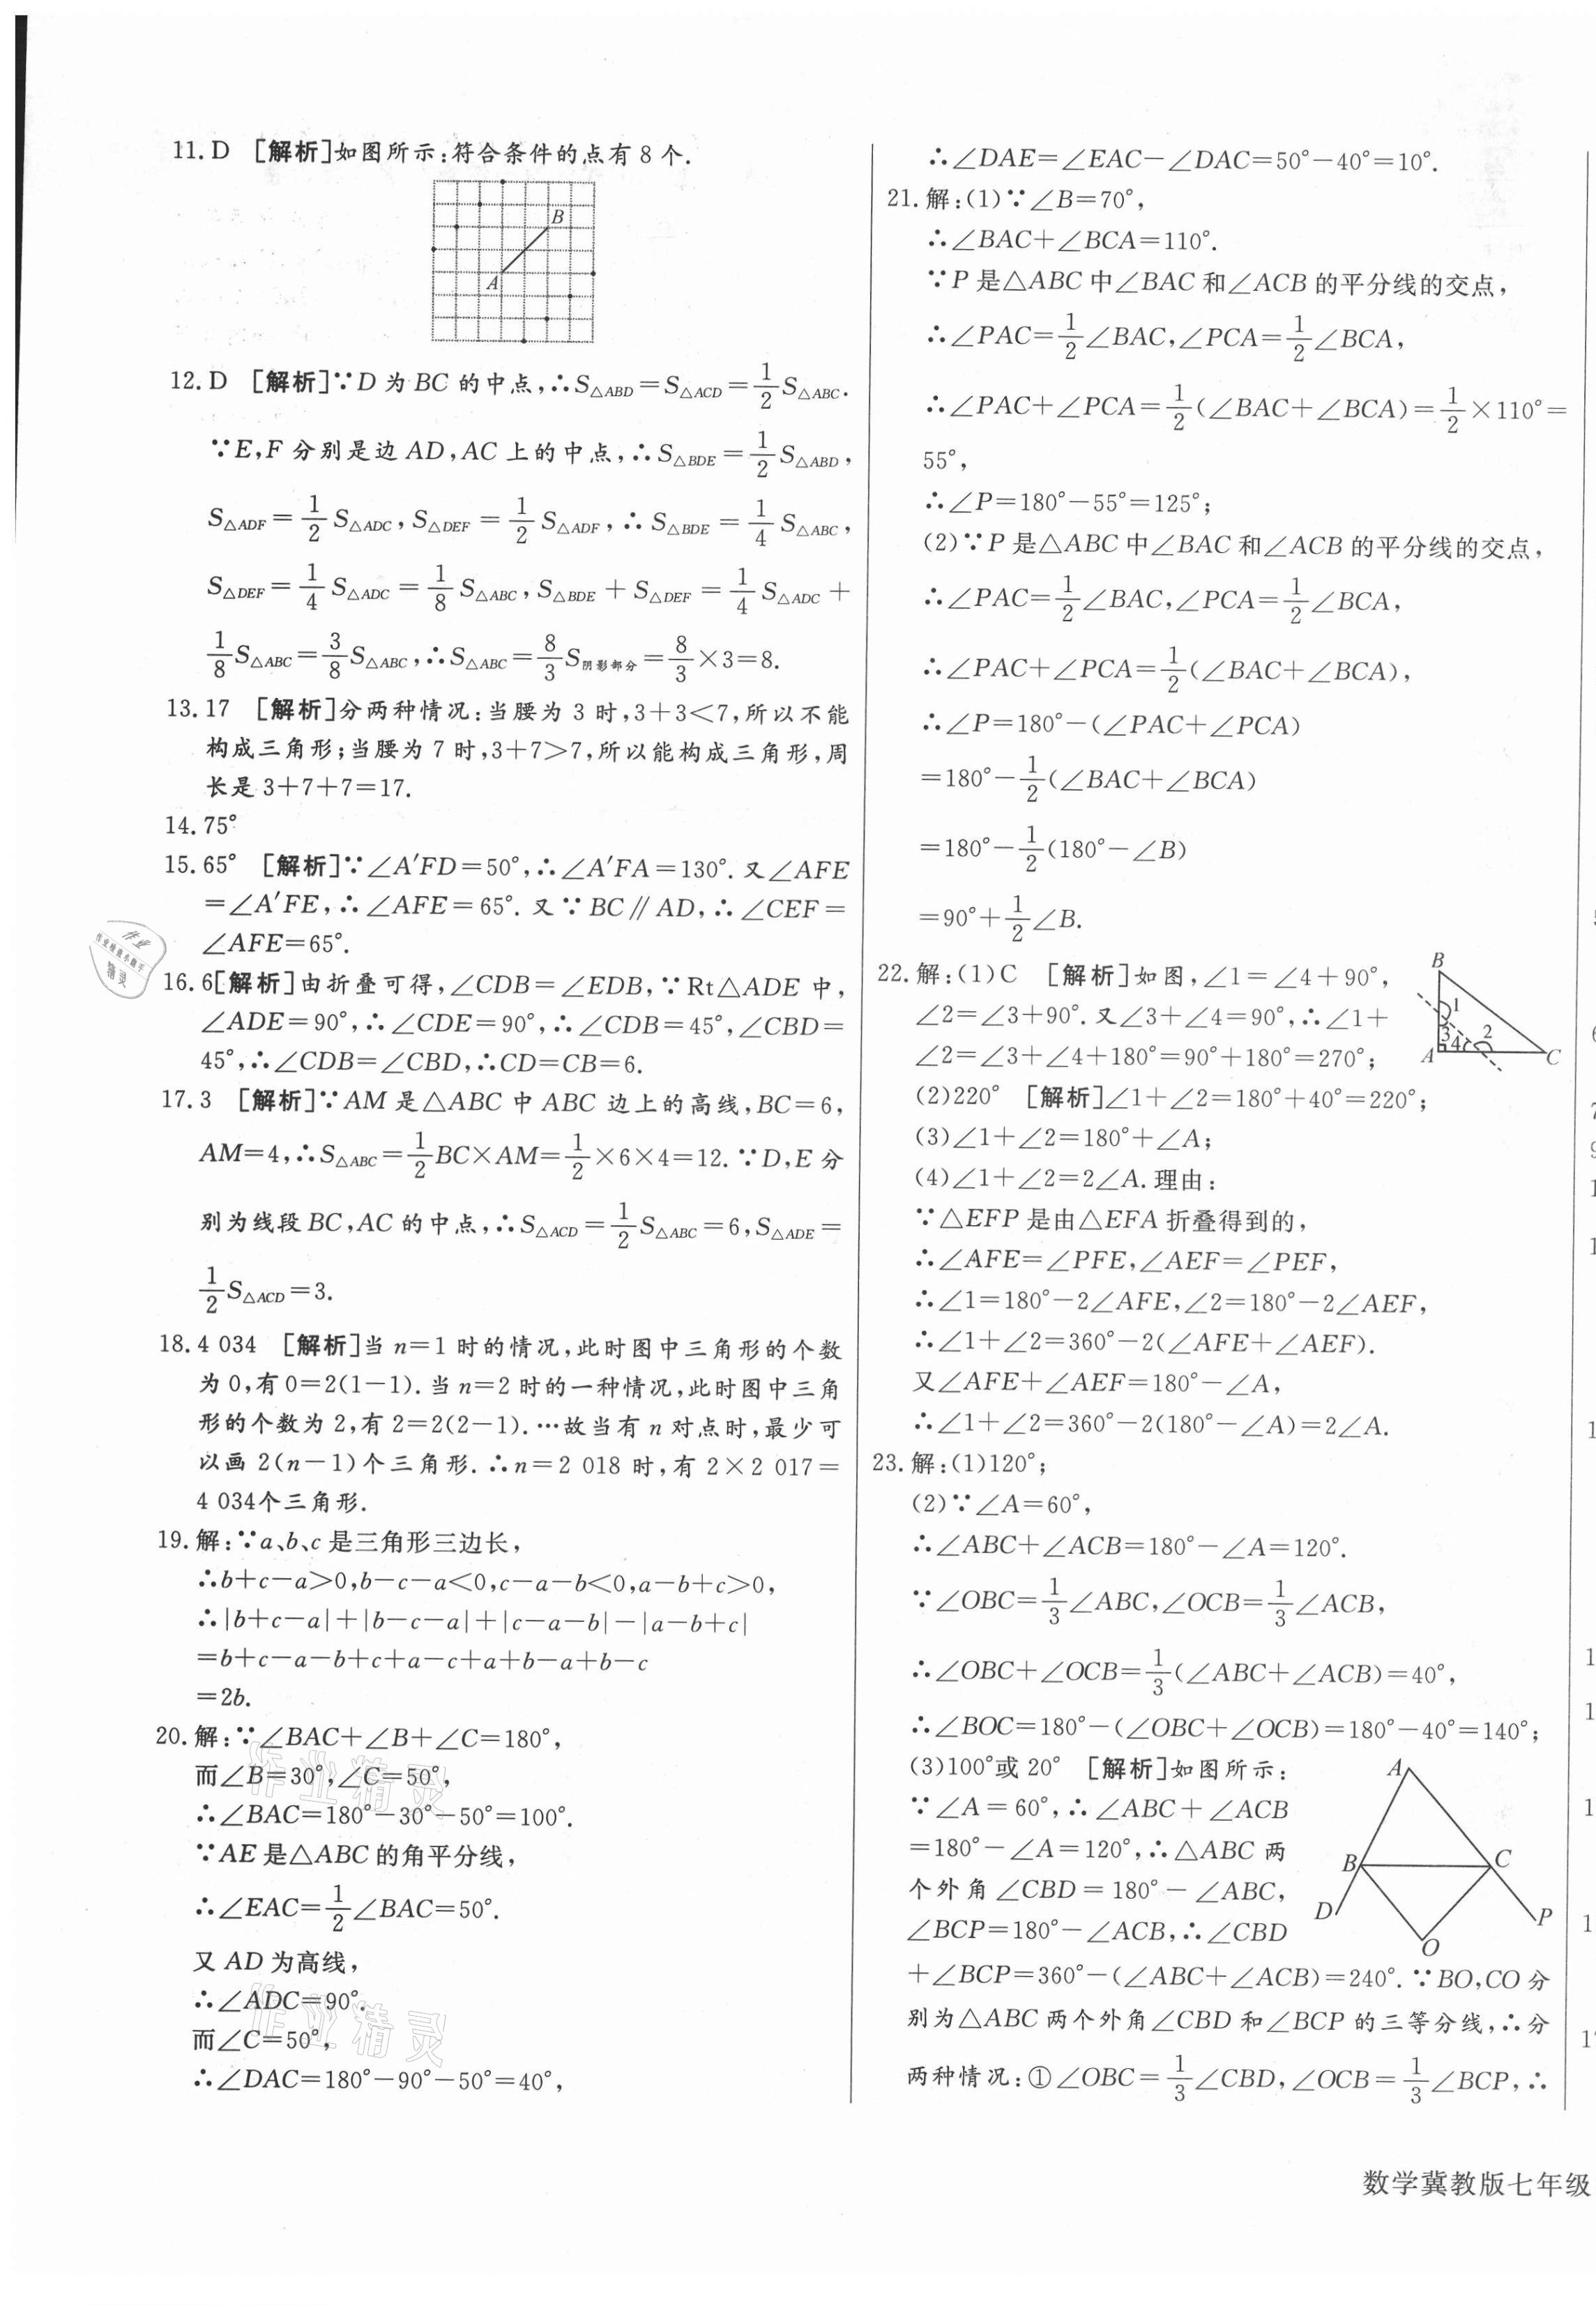 11.D [解析]如图所示:符合条件的点有8个.
B
A
12.D [解析]∵D为BC的中点,∴S△ABD=S△ACD=1/2 S△ABC.
∵E,F分别是边AD,AC上的中点,∴S△BDE=1/2 S△ABD,
S△ADF=1/2 S△ADC,S△DEF=1/2 S△ADF,∴S△BDE=1/4 S△ABC,
S△DEF=1/4 S△ADC=1/8 S△ABC,S△BDE+S△DEF=1/4 S△ADC+
1/8 S△ABC=3/8 S△ABC,∴S△ABC=8/3 S阴影部分=8/3×3=8.
13.17 [解析]分两种情况:当腰为3时,3+3<7,所以不能
构成三角形;当腰为7时,3+7>7,所以能构成三角形,周
长是3+7+7=17.
14.75°
15.65° [解析]∵∠A′FD=50°,∴∠A′FA=130°.又∠AFE
=∠A′FE,∴∠AFE=65°.又∵BC∥AD,∴∠CEF=
∠AFE=65°.
16.6[解析]由折叠可得,∠CDB=∠EDB,∵Rt△ADE中,
∠ADE=90°,∴∠CDE=90°,∴∠CDB=45°,∠CBD=
45°,∴∠CDB=∠CBD,∴CD=CB=6.
17.3 [解析]∵AM是△ABC中ABC边上的高线,BC=6,
AM=4,∴S△ABC=1/2 BC×AM=1/2×6×4=12.∵D,E分
别为线段BC,AC的中点,∴S△ACD=1/2 S△ABC=6,S△ADE=
1/2 S△ACD=3.
18.4 034 [解析]当n=1时的情况,此时图中三角形的个数
为0,有0=2(1-1).当n=2时的一种情况,此时图中三角
形的个数为2,有2=2(2-1).…故当有n对点时,最少可
以画2(n-1)个三角形.∴n=2 018时,有2×2 017=
4 034个三角形.
19.解:∵a、b、c是三角形三边长,
∴b+c-a>0,b-c-a<0,c-a-b<0,a-b+c>0,
∴|b+c-a|+|b-c-a|+|c-a-b|-|a-b+c|
=b+c-a-b+c+a-c+a+b-a+b-c
=2b.
20.解:∵∠BAC+∠B+∠C=180°,
而∠B=30°,∠C=50°,
∴∠BAC=180°-30°-50°=100°.
∵AE是△ABC的角平分线,
∴∠EAC=1/2∠BAC=50°.
又AD为高线,
∴∠ADC=90°.
而∠C=50°,
∴∠DAC=180°-90°-50°=40°,
∴∠DAE=∠EAC-∠DAC=50°-40°=10°.
21.解:(1)∵∠B=70°,
∴∠BAC+∠BCA=110°.
∵P是△ABC中∠BAC和∠ACB的平分线的交点,
∴∠PAC=1/2∠BAC,∠PCA=1/2∠BCA,
∴∠PAC+∠PCA=1/2(∠BAC+∠BCA)=1/2×110°=
55°,
∴∠P=180°-55°=125°;
(2)∵P是△ABC中∠BAC和∠ACB的平分线的交点,
∴∠PAC=1/2∠BAC,∠PCA=1/2∠BCA,
∴∠PAC+∠PCA=1/2(∠BAC+∠BCA),
∴∠P=180°-(∠PAC+∠PCA)
=180°-1/2(∠BAC+∠BCA)
=180°-1/2(180°-∠B)
=90°+1/2∠B.
22.解:(1)C [解析]如图,∠1=∠4+90°,
∠2=∠3+90°.又∠3+∠4=90°,∴∠1+
∠2=∠3+∠4+180°=90°+180°=270°;
B
1
3
4
2
A
C
(2)220° [解析]∠1+∠2=180°+40°=220°;
(3)∠1+∠2=180°+∠A;
(4)∠1+∠2=2∠A.理由:
∵△EFP是由△EFA折叠得到的,
∴∠AFE=∠PFE,∠AEF=∠PEF,
∴∠1=180°-2∠AFE,∠2=180°-2∠AEF,
∴∠1+∠2=360°-2(∠AFE+∠AEF).
又∠AFE+∠AEF=180°-∠A,
∴∠1+∠2=360°-2(180°-∠A)=2∠A.
23.解:(1)120°;
(2)∵∠A=60°,
∴∠ABC+∠ACB=180°-∠A=120°.
∵∠OBC=1/3∠ABC,∠OCB=1/3∠ACB,
∴∠OBC+∠OCB=1/3(∠ABC+∠ACB)=40°,
∴∠BOC=180°-(∠OBC+∠OCB)=180°-40°=140°;
(3)100°或20° [解析]如图所示:
∵∠A=60°,∴∠ABC+∠ACB
=180°-∠A=120°,∴△ABC两
个外角∠CBD=180°-∠ABC,
∠BCP=180°-∠ACB,∴∠CBD
A
B
C
D
P
O
+∠BCP=360°-(∠ABC+∠ACB)=240°.∵BO,CO分
别为△ABC两个外角∠CBD和∠BCP的三等分线,∴分
两种情况:①∠OBC=1/3∠CBD,∠OCB=1/3∠BCP,∴
数学冀教版七年级
作业精灵
作业精灵